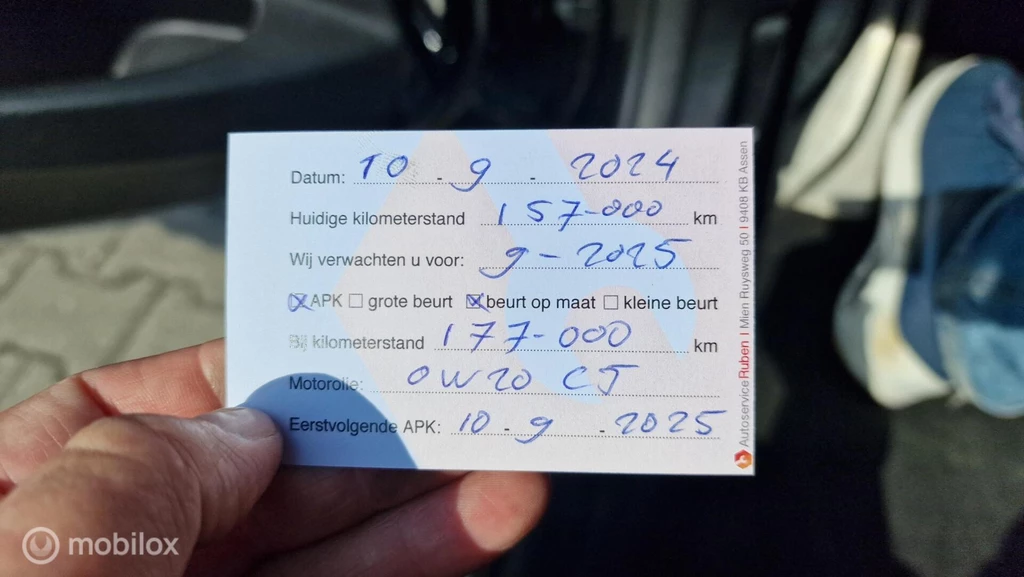 Datum: 10 - 9 - 2024
Huidige kilometerstand 157-000 km
Wij verwachten u voor: 9 - 2025
APK grote beurt beurt op maat kleine beurt
Bij kilometerstand 177-000 km
Motorolie: 0W20 CJ
Eerstvolgende APK: 10 - 9 - 2025
AutoserviceRuben I Mien Ruysweg 50 I 9408 KB Assen
mobilox